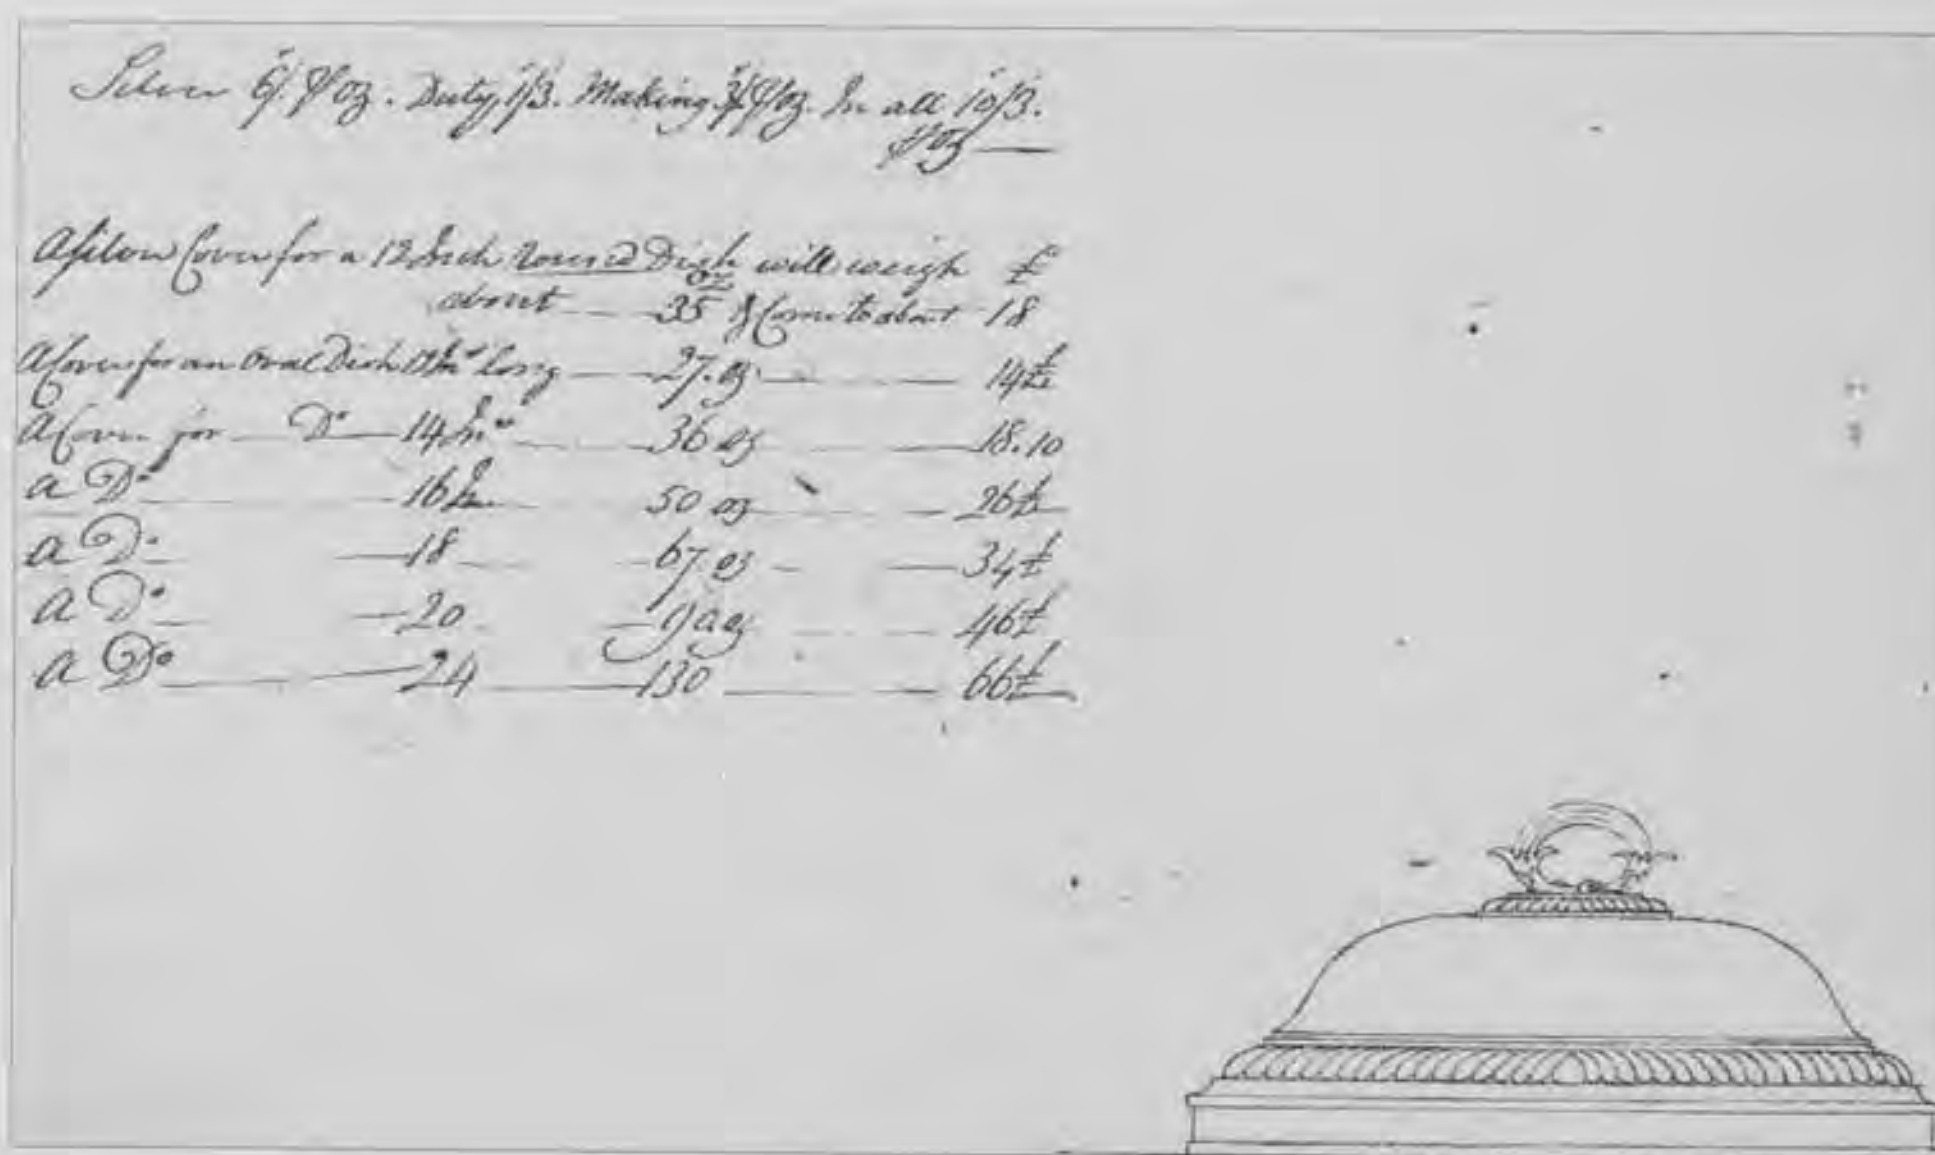 Silver 6/. ⅌ oz. Duty, 1/3. Making. 3/ ⅌ oz. In all 10/3.
⅌ oz —
A Silver Cover for a 12 Inch Round Dish will weigh £
oz
about — 35 & Come to about 18
A Cover for an Oval Dish 12 Ins long — 27. oz — 14£
A Cover for — Do — 14 Ins — 36 oz — 18.10
A Do — 16 In — 50 oz — 26£
A Do — 18 — 67. oz — 34£
A Do — 20 — 90 oz — 46£
A Do — 24 — 130 — 66£